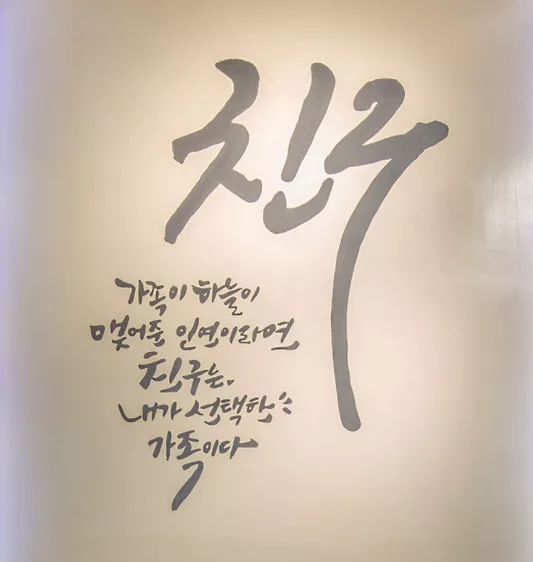 친구
가족이 하늘이
맺어준 인연이라면
친구는,
내가 선택한
가족이다